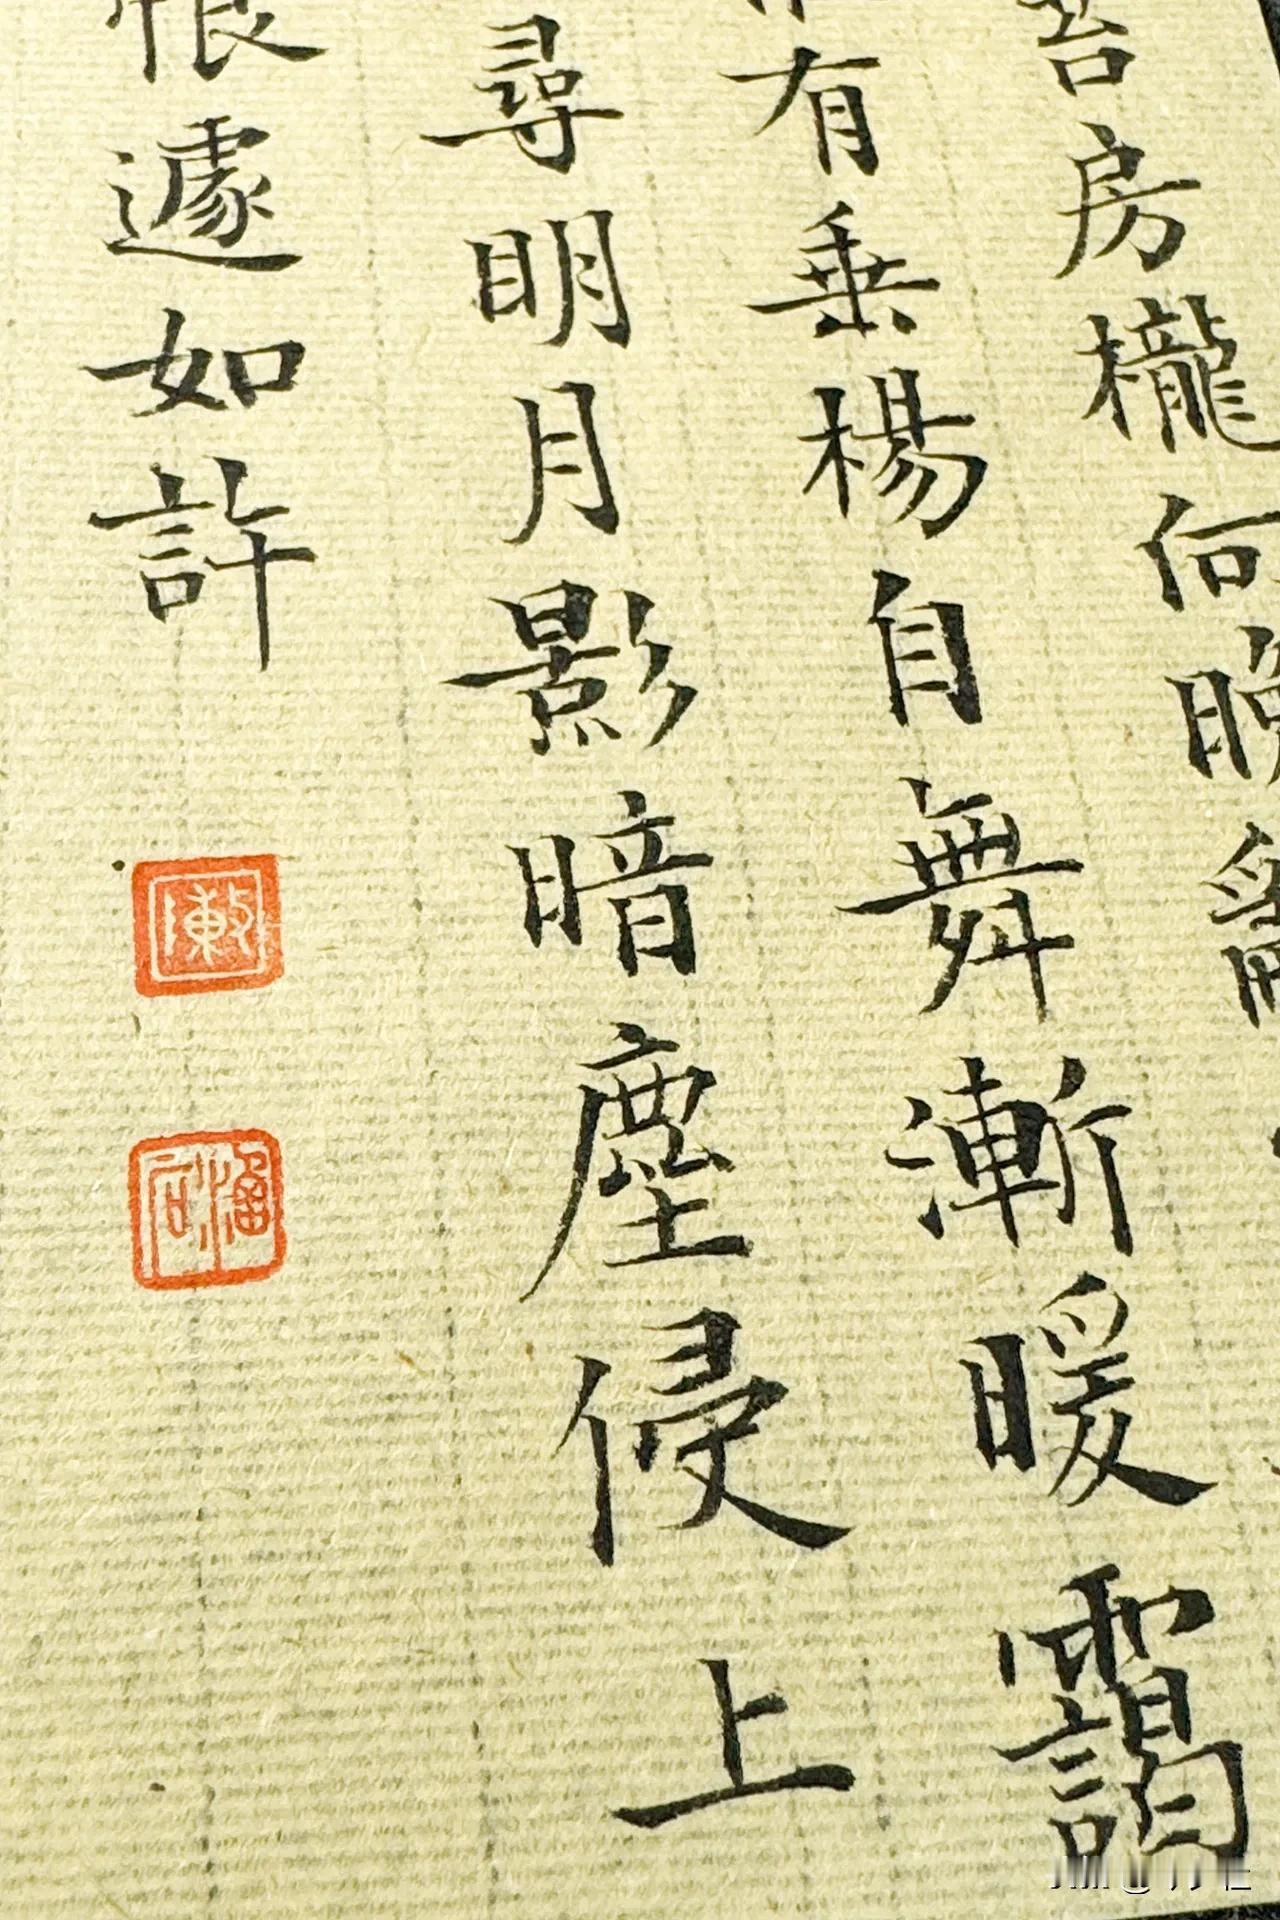 苔房櫳何晚亂
有垂楊自舞漸暖靄
尋明月影暗塵侵上
恨遽如許